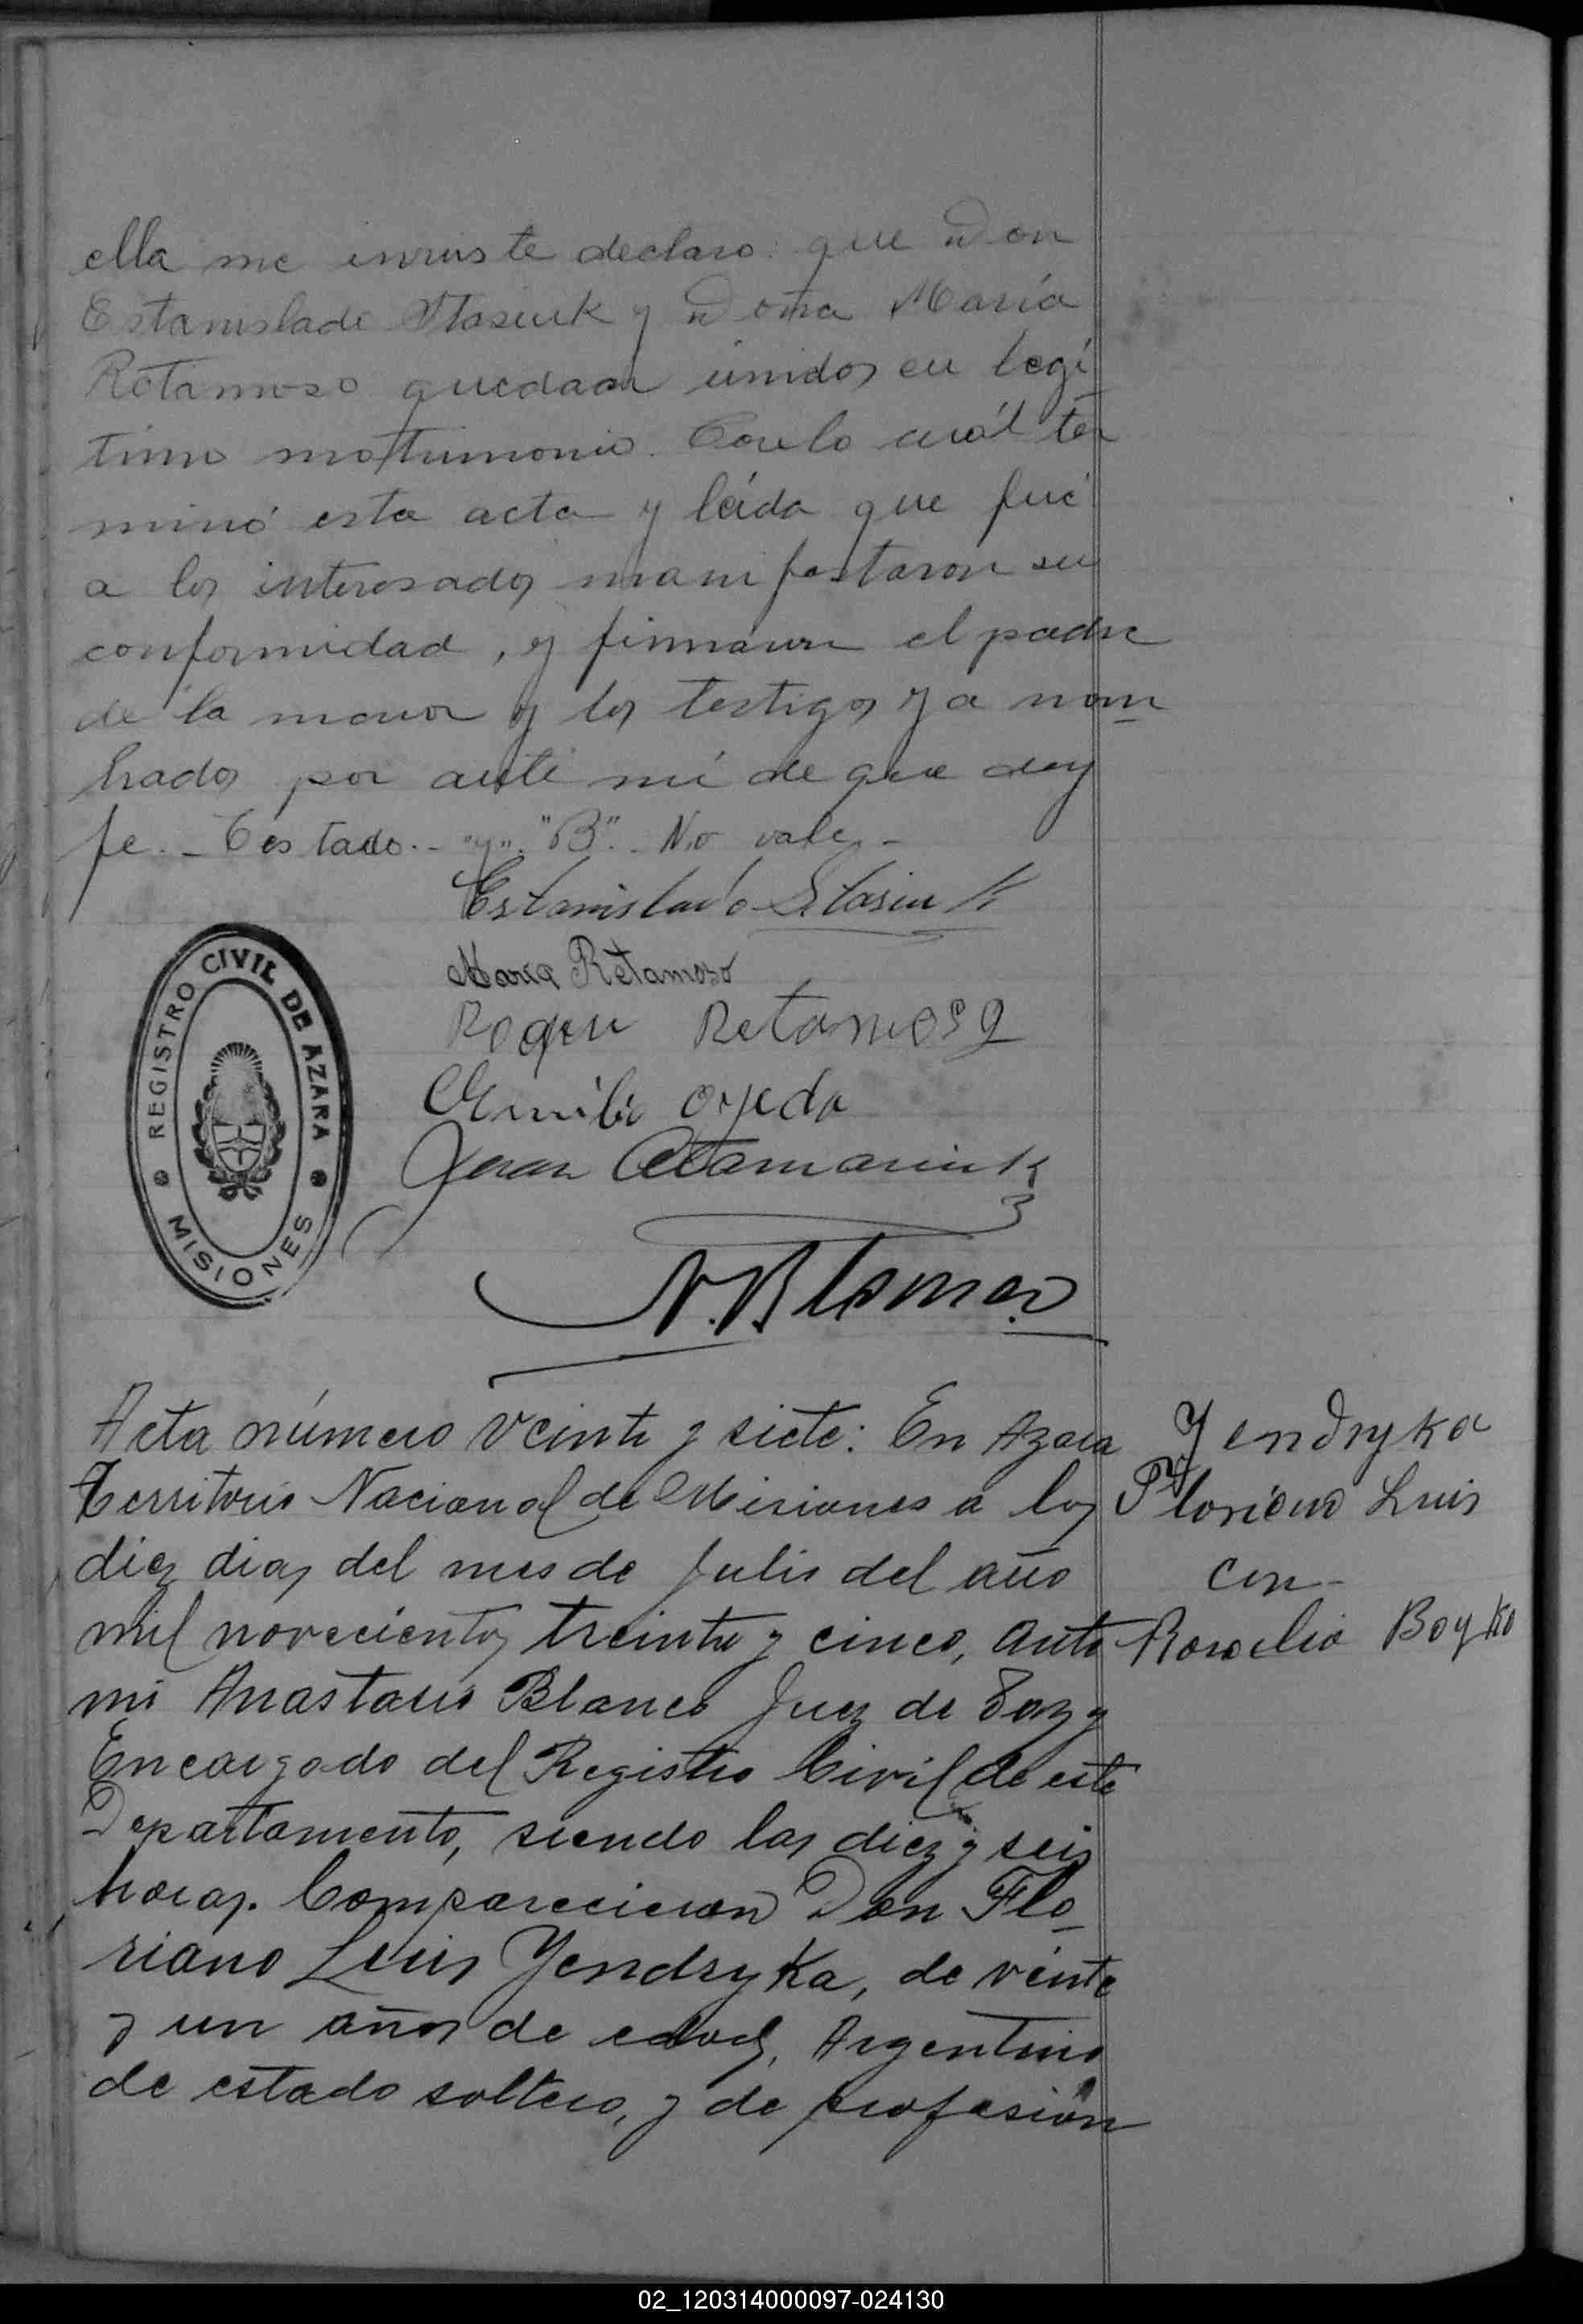 ella me inviste declaro: que Don
Estanislado Stasiuk y Doña María
Retamoso quedaan únidos en legi
timo matrimonio. Con lo cuál ter
minó esta acta y leída que fué
a los interesados manifestaron su
conformidad, y firmaron el padre
de la menor y los testigos ya nom
brados por ante mí de que doy
fe. _ Téstado. - "y". "B". No vale. -
Estanislado Stasiuk
María Retamoso
Retamoso
Emilio Ojeda
Juan Atamaniuk
REGISTRO CIVIL DE AZARA
MISIONES
A. Blanco
Acta número veinte y siete: En Azara
Territorio Nacional de Misiones a los
diez dias del mes de Julio del año
mil novecientos treinta y cinco, ante
mi Anastacio Blanco Juez de Paz y
Encargado del Registro Civil de este
Departamento, siendo las diez y seis
horas. Comparecieron Don Flo_
riano Luis Yendryka, de veinte
y un años de edad, Argentino
de estado soltero, y de profesión
Yendryka
Floriano Luis
con-
Rosalia Boyko
02_120314000097-024130